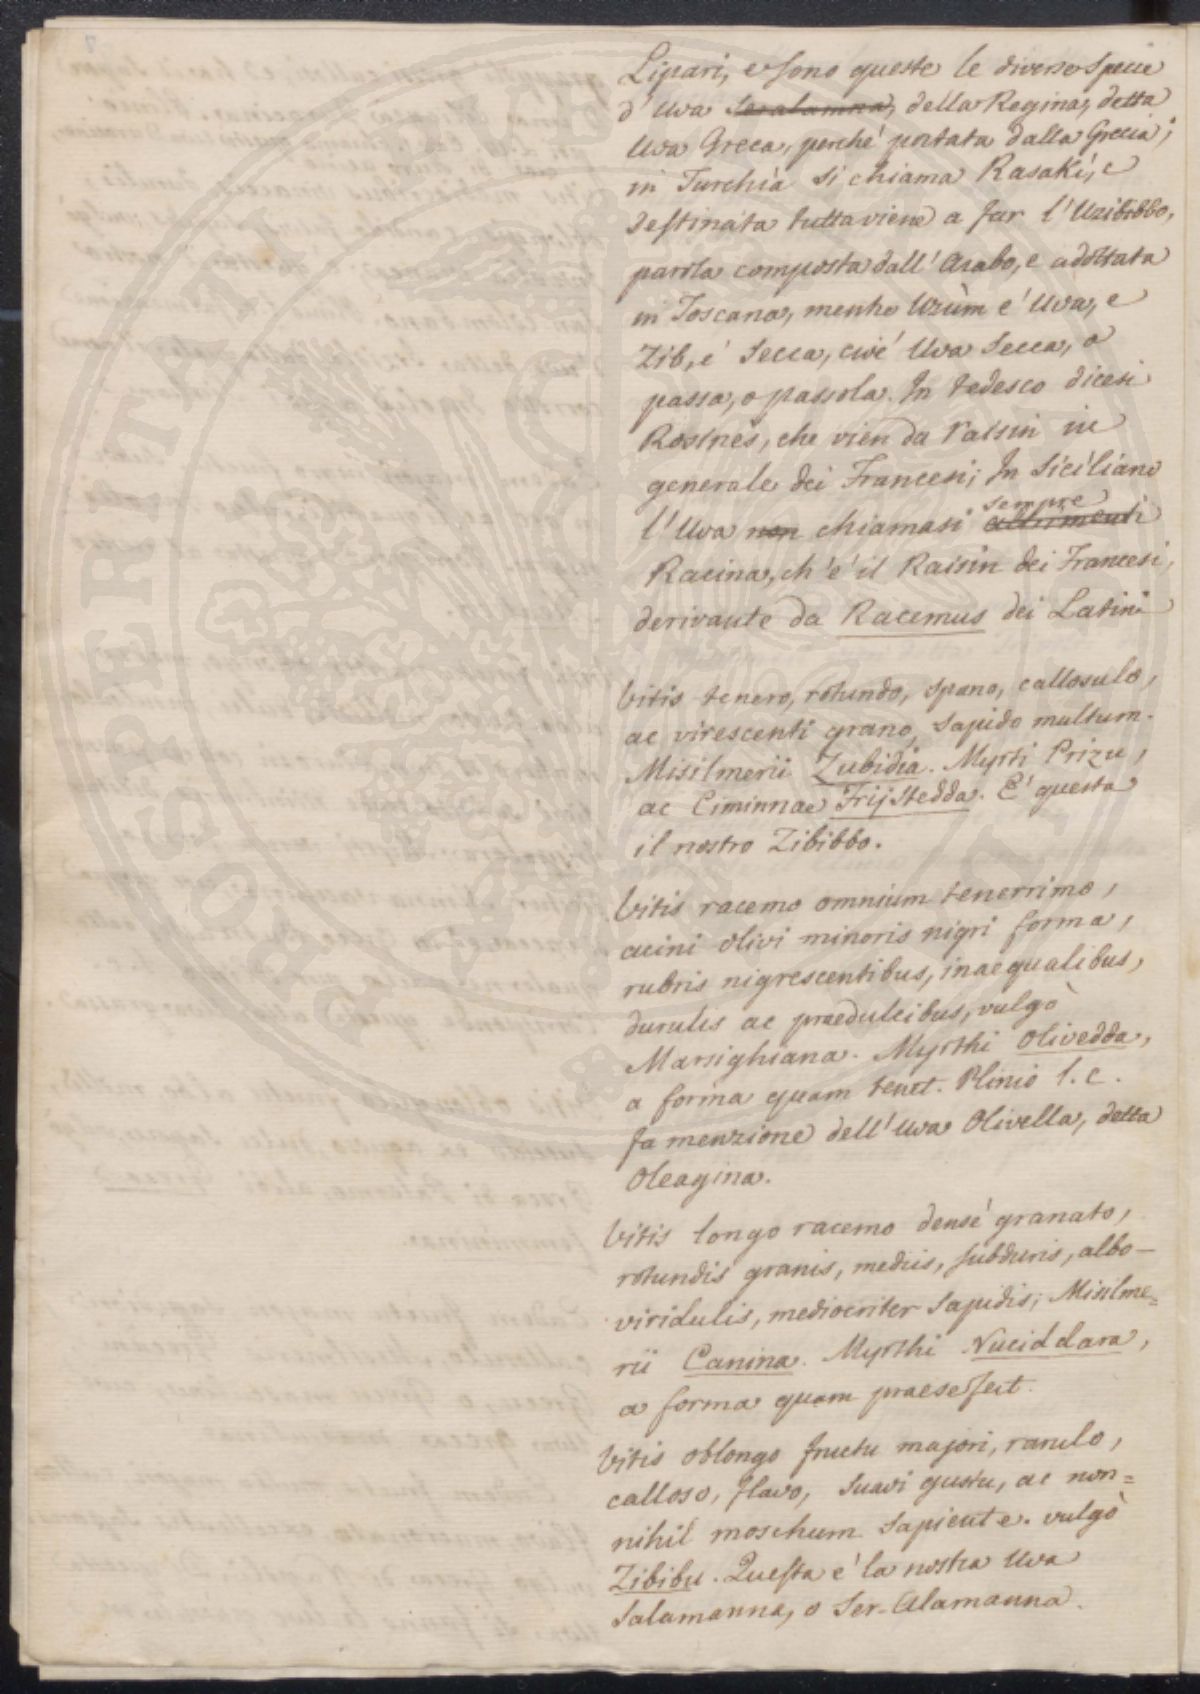 Lipari, e sono queste le diverse specie
d'Uva Seralamna, della Regina, detta
Uva Greca, perchè portata dalla Grecia;
in Turchìa si chiama Rasakì, e
destinata tutta viene a far l'Uzibibbo,
parola composta dall'Arabo, e adottata
in Toscana, mentre Uzùm è Uva, e
Zib, è Secca, cioè Uva Secca, o
passa, o passola. In tedesco dicesi
Rosines, che vien da raisin in
generale dei Francesi; In Siciliano
sempre
l'Uva non chiamasi altrimenti
Racina, ch'è il Raisin dei Francesi,
derivante da Racemus dei Latini
Vitis tenero, rotundo, spano, callosulo,
ac virescenti grano, sapido multum.
Misilmerii Zubidia. Myrti Prizu,
ac Ciminnae Frijstedda. È questa
il nostro Zibibbo.
Vitis racemo omnium tenerrimo,
acini olivi minoris nigri forma,
rubris nigrescentibus, inaequalibus,
durulis ac praedulcibus, vulgò
Marsighiana. Myrthi Olivedda,
a forma quam tenet. Plinio l. c.
fa menzione dell'Uva Olivella, detta
Oleagina.
Vitis longo racemo densè granato,
rotundis granis, mediis, subduris, albo-
viridulis, mediocriter sapidis; Misilme=
rii Canina. Myrthi Nuciddara,
a forma quam praesefert.
Vitis oblongo fructu majori, rarulo,
calloso, flavo, suavi gustu, ac non=
nihil moschum sapiente. vulgò
Zibibu. Questa è la nostra Uva
Salamanna, o Ser-Alamanna.